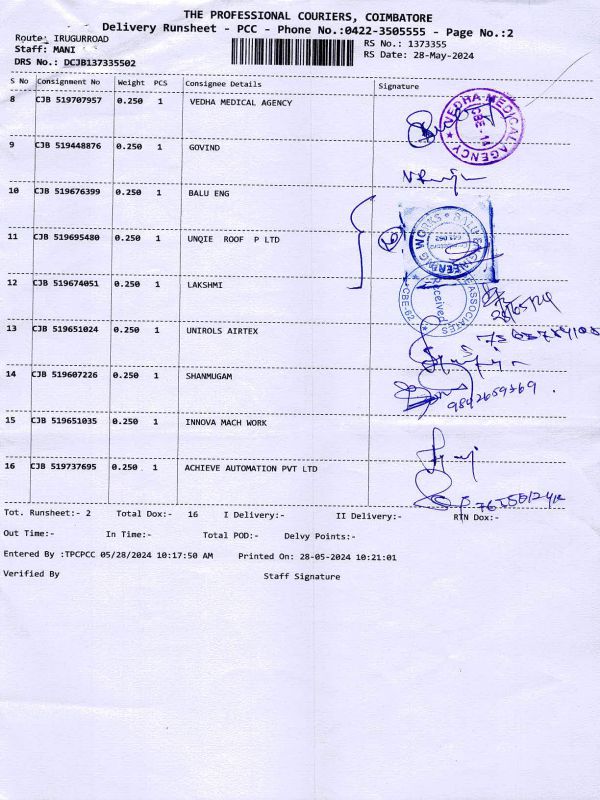 THE PROFESSIONAL COURIERS, COIMBATORE
Delivery Runsheet - PCC - Phone No.:0422-3505555 - Page No.:2
Route: IRUGURROAD
RS No.: 1373355
Staff: MANI
RS Date: 28-May-2024
DRS No.: DCJB137335502
S No Consignment No Weight PCS Consignee Details Signature
8 CJB 519707957 0.250 1 VEDHA MEDICAL AGENCY
VEDHA MEDICAL AGENCY
CBE-14
9 CJB 519448876 0.250 1 GOVIND
10 CJB 519676399 0.250 1 BALU ENG
11 CJB 519695480 0.250 1 UNQIE ROOF P LTD
12 CJB 519674051 0.250 1 LAKSHMI
Received
ASSOCIATES
13 CJB 519651024 0.250 1 UNIROLS AIRTEX
14 CJB 519607226 0.250 1 SHANMUGAM
15 CJB 519651035 0.250 1 INNOVA MACH WORK
16 CJB 519737695 0.250 1 ACHIEVE AUTOMATION PVT LTD
Tot. Runsheet:- 2 Total Dox:- 16 I Delivery:- II Delivery:- RTN Dox:-
Out Time:- In Time:- Total POD:- Delvy Points:-
Entered By :TPCPCC 05/28/2024 10:17:50 AM Printed On: 28-05-2024 10:21:01
Verified By Staff Signature